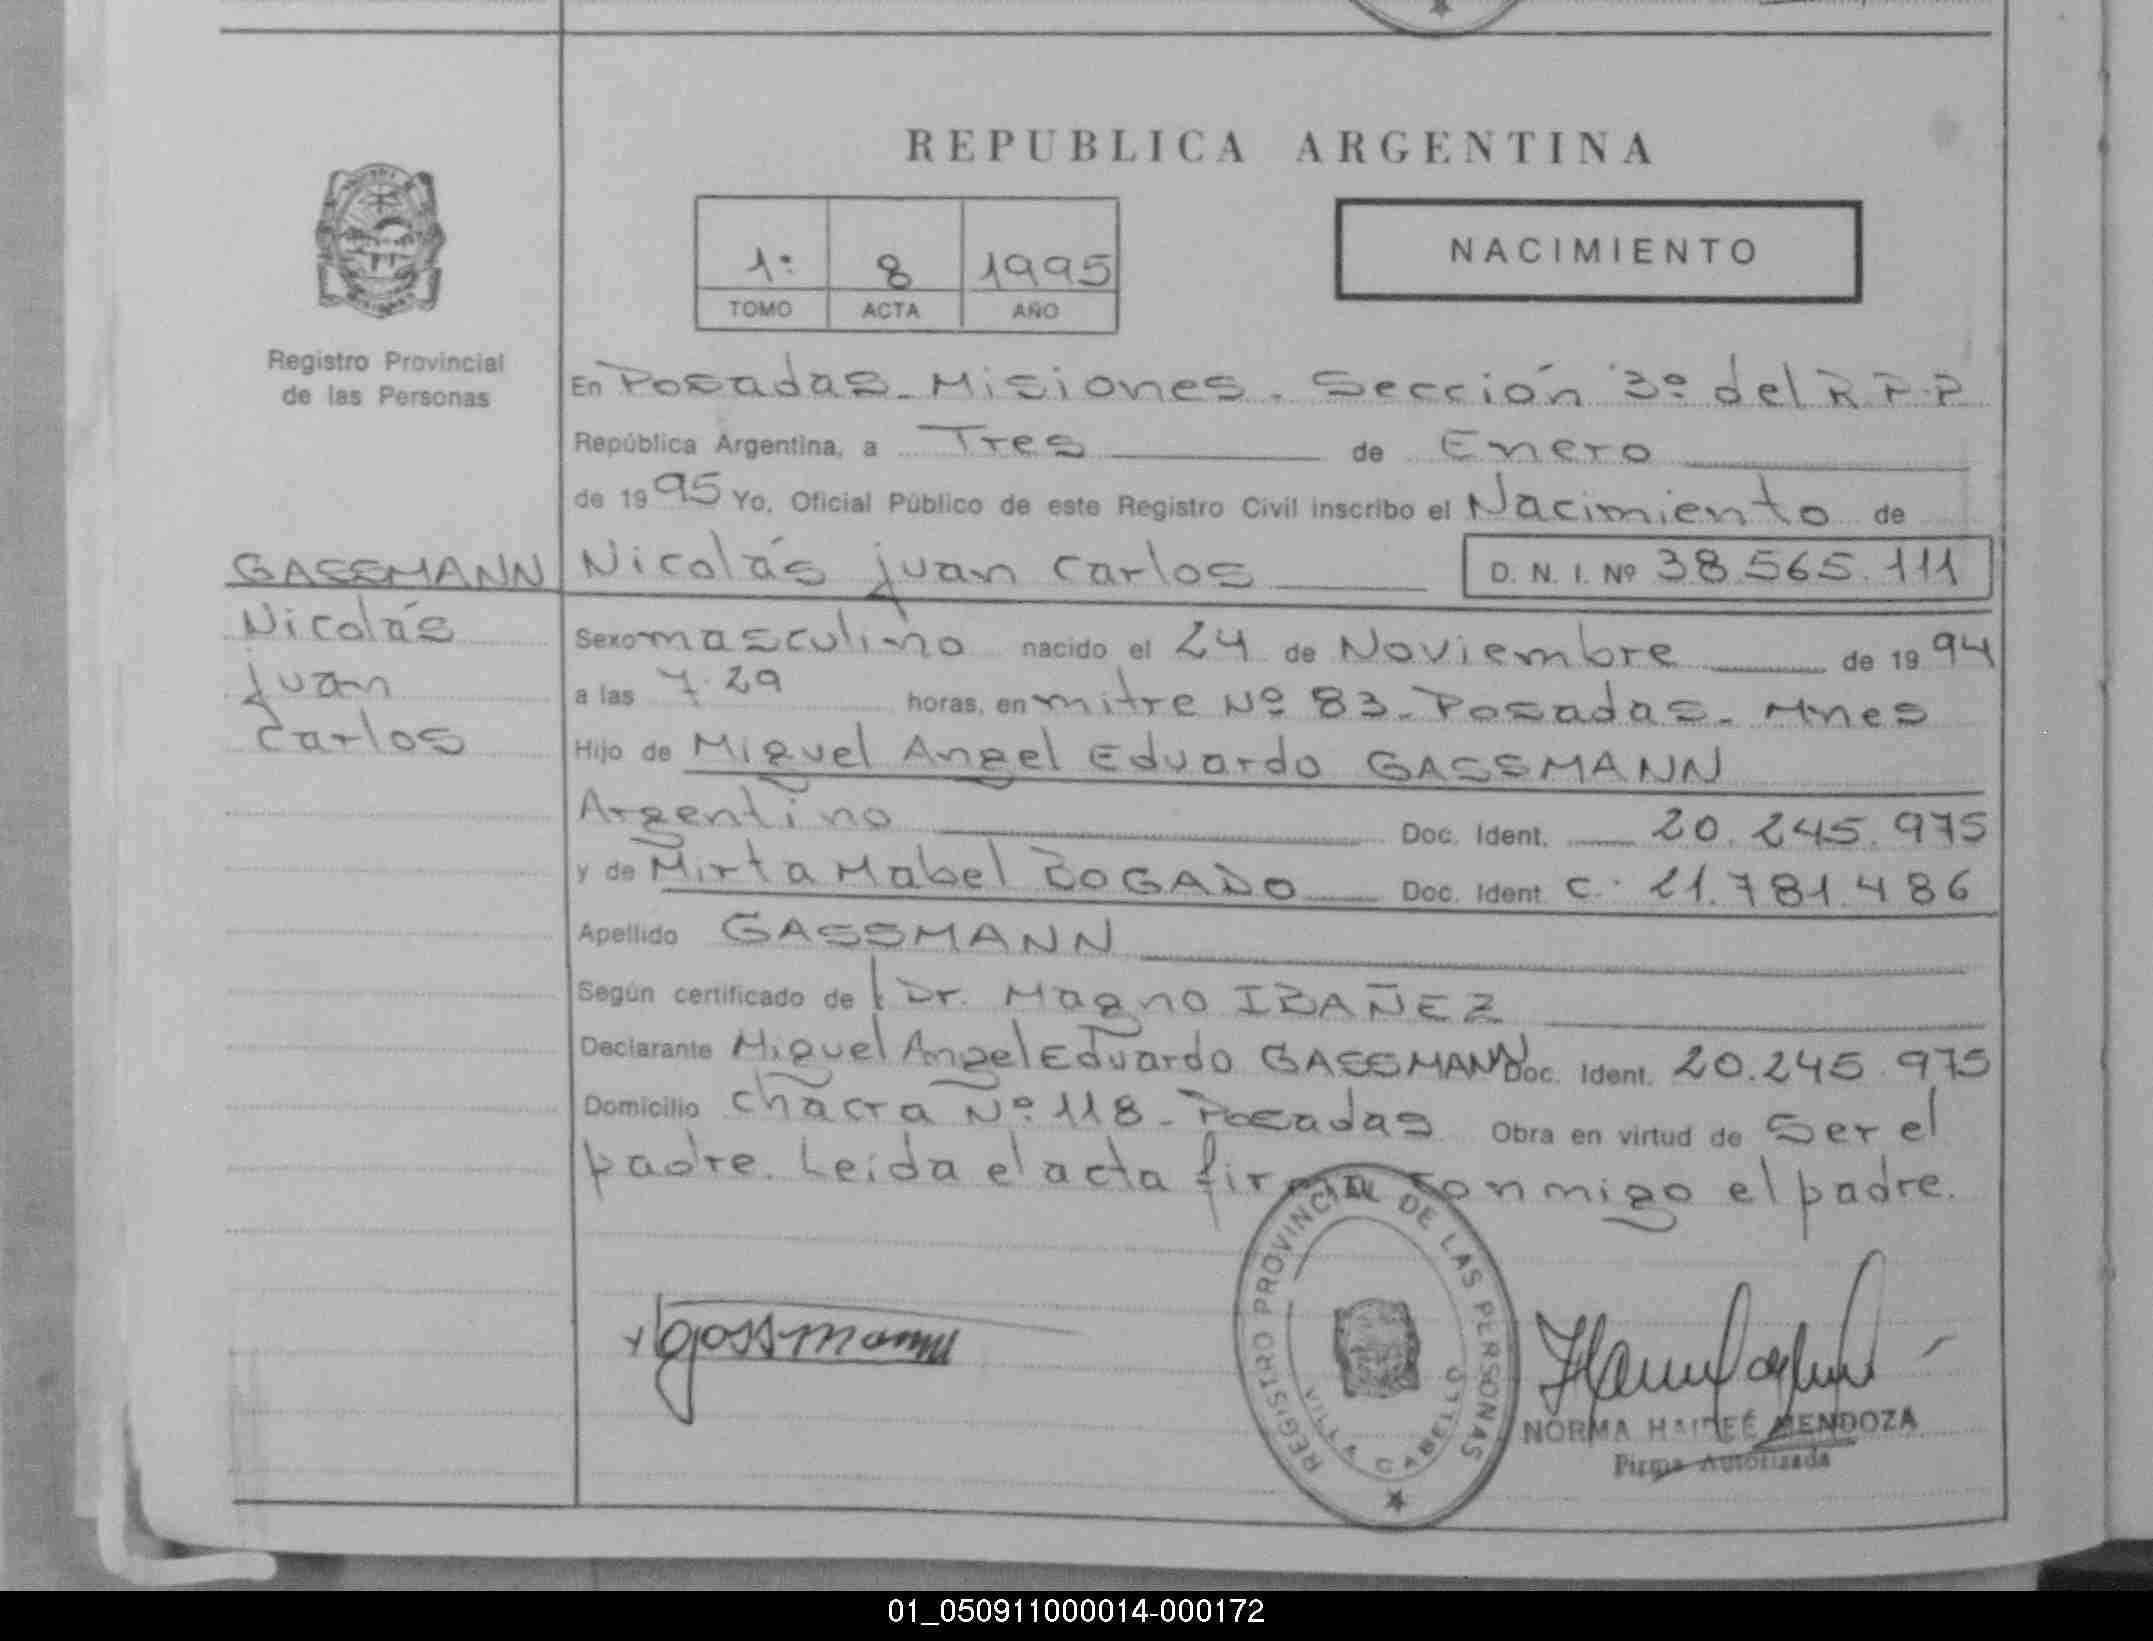 REPUBLICA ARGENTINA
1º 8 1995
TOMO ACTA AÑO
NACIMIENTO
Registro Provincial
de las Personas
En Posadas - Misiones. Sección 3º del R.P.P
República Argentina, a Tres de Enero
de 1995 Yo, Oficial Público de este Registro Civil inscribo el Nacimiento de
Nicolás Juan Carlos D. N. I. Nº 38.565.111
GASSMANN
Nicolás
Juan
Carlos
Sexo masculino nacido el 24 de Noviembre de 1994
a las 7.29 horas, en mitre Nº 83 - Posadas - Mnes
Hijo de Miguel Angel Eduardo GASSMANN
Argentino Doc. Ident. 20.245.975
y de Mirta Mabel BOGADO Doc. Ident C. 21.781.486
Apellido GASSMANN
Según certificado de l Dr. Magno IBAÑEZ
Declarante Miguel Angel Eduardo GASSMANN Doc. Ident. 20.245.975
Domicilio Chacra Nº 118 - Posadas Obra en virtud de Ser el
padre. Leida el acta firma conmigo el padre.
Gassmann
REGISTRO PROVINCIAL DE LAS PERSONAS
VILLA CABELLO
NORMA HAIDEÉ MENDOZA
Firma Autorizada
01_050911000014-000172